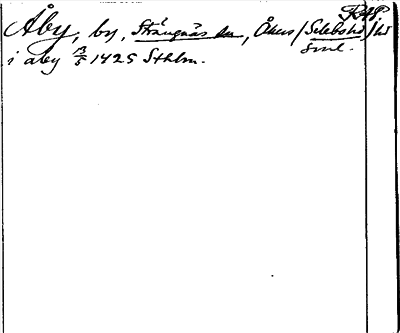 Åby, by, Strängnäs sn, Åkers / Selebo hd / hd
Sml.
i aby 13/5 1425 Sthlm.